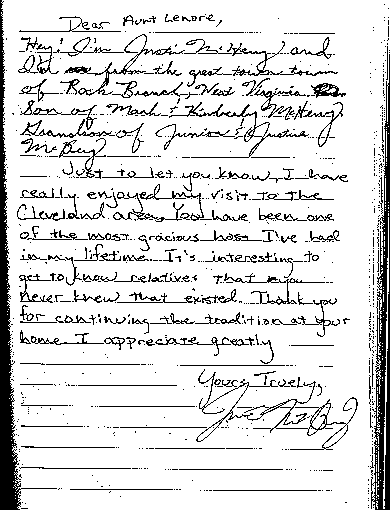 Dear Aunt Lenore,
Hey! I'm Justin McHenry and
I'm from the great town
of Rock Branch, West Virginia
Son of Mark & Kimberly McHenry
Grandson of Junior & Justine
Just to let you know, I have
really enjoyed my visit to the
Cleveland area. You have been one
of the most gracious host I've had
in my lifetime. It's interesting to
get to know relatives that you
never knew that existed. Thank you
for continuing the tradition at your
home. I appreciate greatly
Yours Truely,